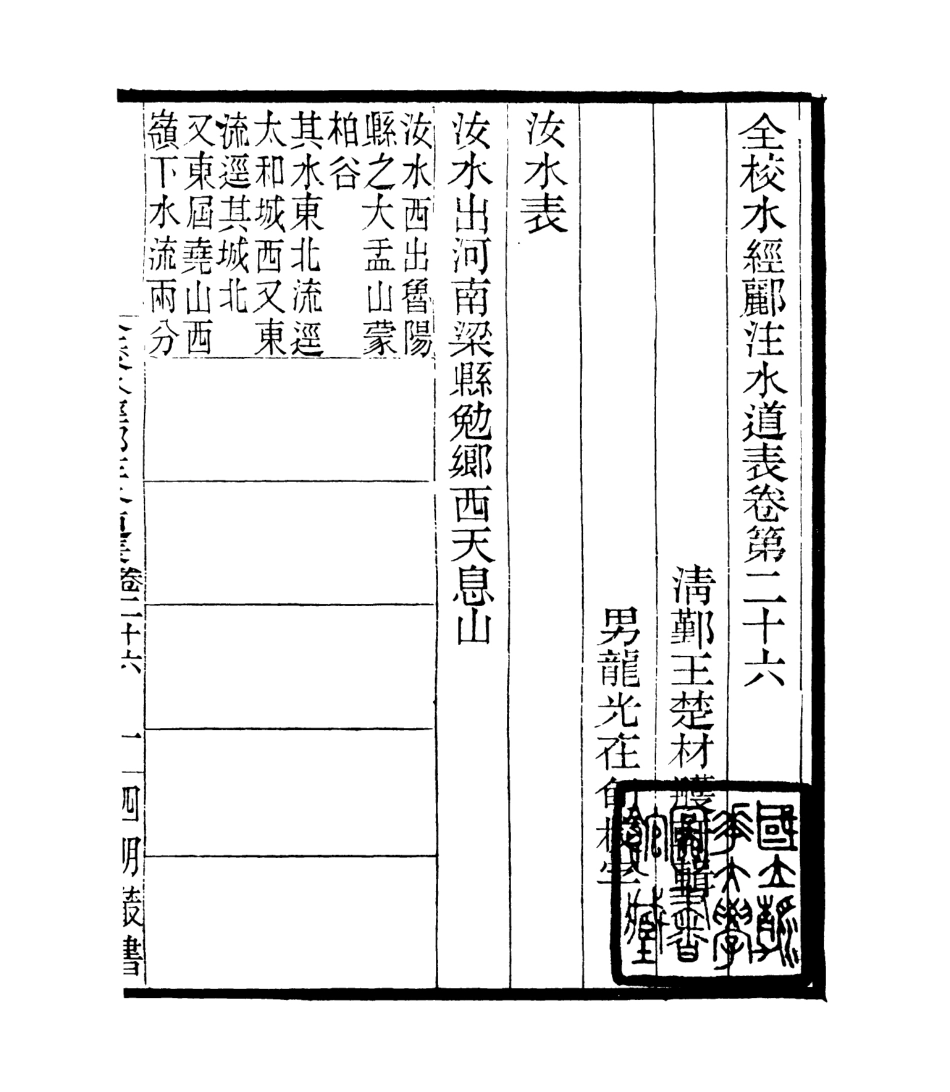 全校水經酈注水道表卷第二十六
清鄞王楚材䕶輯
男龍光在旬校字
汝水表
汝水出河南梁縣勉鄉西天息山
汝水西出魯陽
縣之大盂山蒙
柏谷
其水東北流逕
太和城西又東
流逕其城北
又東屆堯山西
嶺下水流兩分
全校水經酈注水道表卷二十六 一 四明叢書
國立清華大學圖書館藏